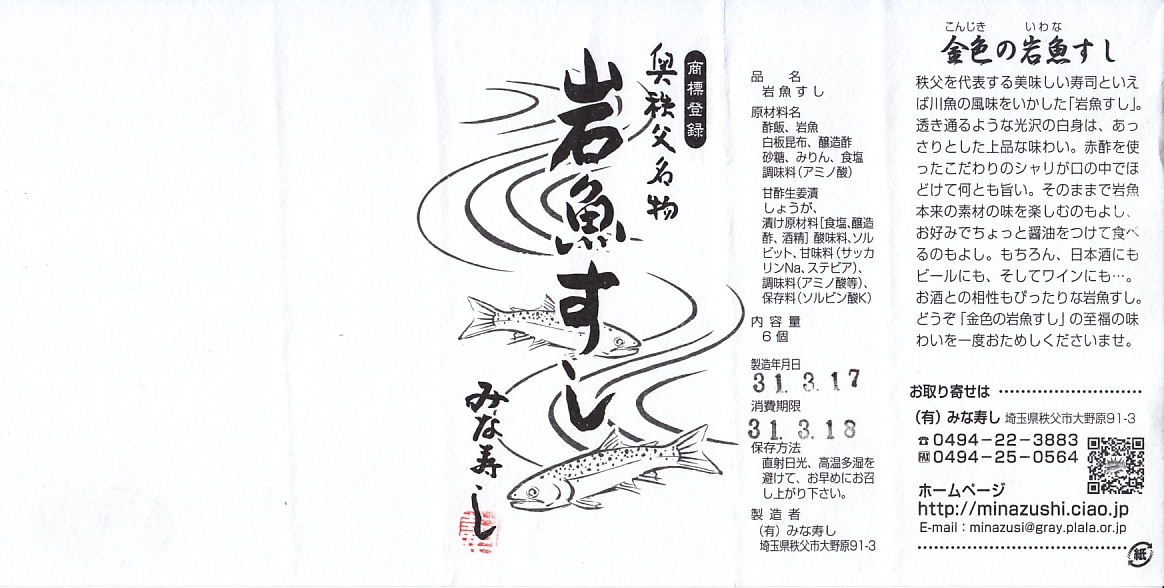 商標登録
奥秩父名物
岩魚すし
みな寿し
品名
岩魚すし
原材料名
酢飯、岩魚
白板昆布、醸造酢
砂糖、みりん、食塩
調味料(アミノ酸)
甘酢生姜漬
しょうが、
漬け原材料[食塩、醸造
酢、酒精] 酸味料、ソル
ビット、甘味料(サッカ
リンNa、ステビア)、
調味料(アミノ酸等)、
保存料(ソルビン酸K)
内容量
6個
製造年月日
31.3.17
消費期限
31.3.18
保存方法
直射日光、高温多湿を
避けて、お早めにお召
し上がり下さい。
製造者
(有)みな寿し
埼玉県秩父市大野原91-3
こんじき いわな
金色の岩魚すし
秩父を代表する美味しい寿司といえ
ば川魚の風味をいかした「岩魚すし」。
透き通るような光沢の白身は、あっ
さりとした上品な味わい。赤酢を使
ったこだわりのシャリが口の中でほ
どけて何とも旨い。そのままで岩魚
本来の素材の味を楽しむのもよし、
お好みでちょっと醤油をつけて食べ
るのもよし。もちろん、日本酒にも
ビールにも、そしてワインにも…。
お酒との相性もぴったりな岩魚すし。
どうぞ「金色の岩魚すし」の至福の味
わいを一度おためしくださいませ。
お取り寄せは
(有)みな寿し 埼玉県秩父市大野原91-3
☎0494-22-3883
FAX0494-25-0564
ホームページ
http://minazushi.ciao.jp
E-mail：minazusi@gray.plala.or.jp
紙